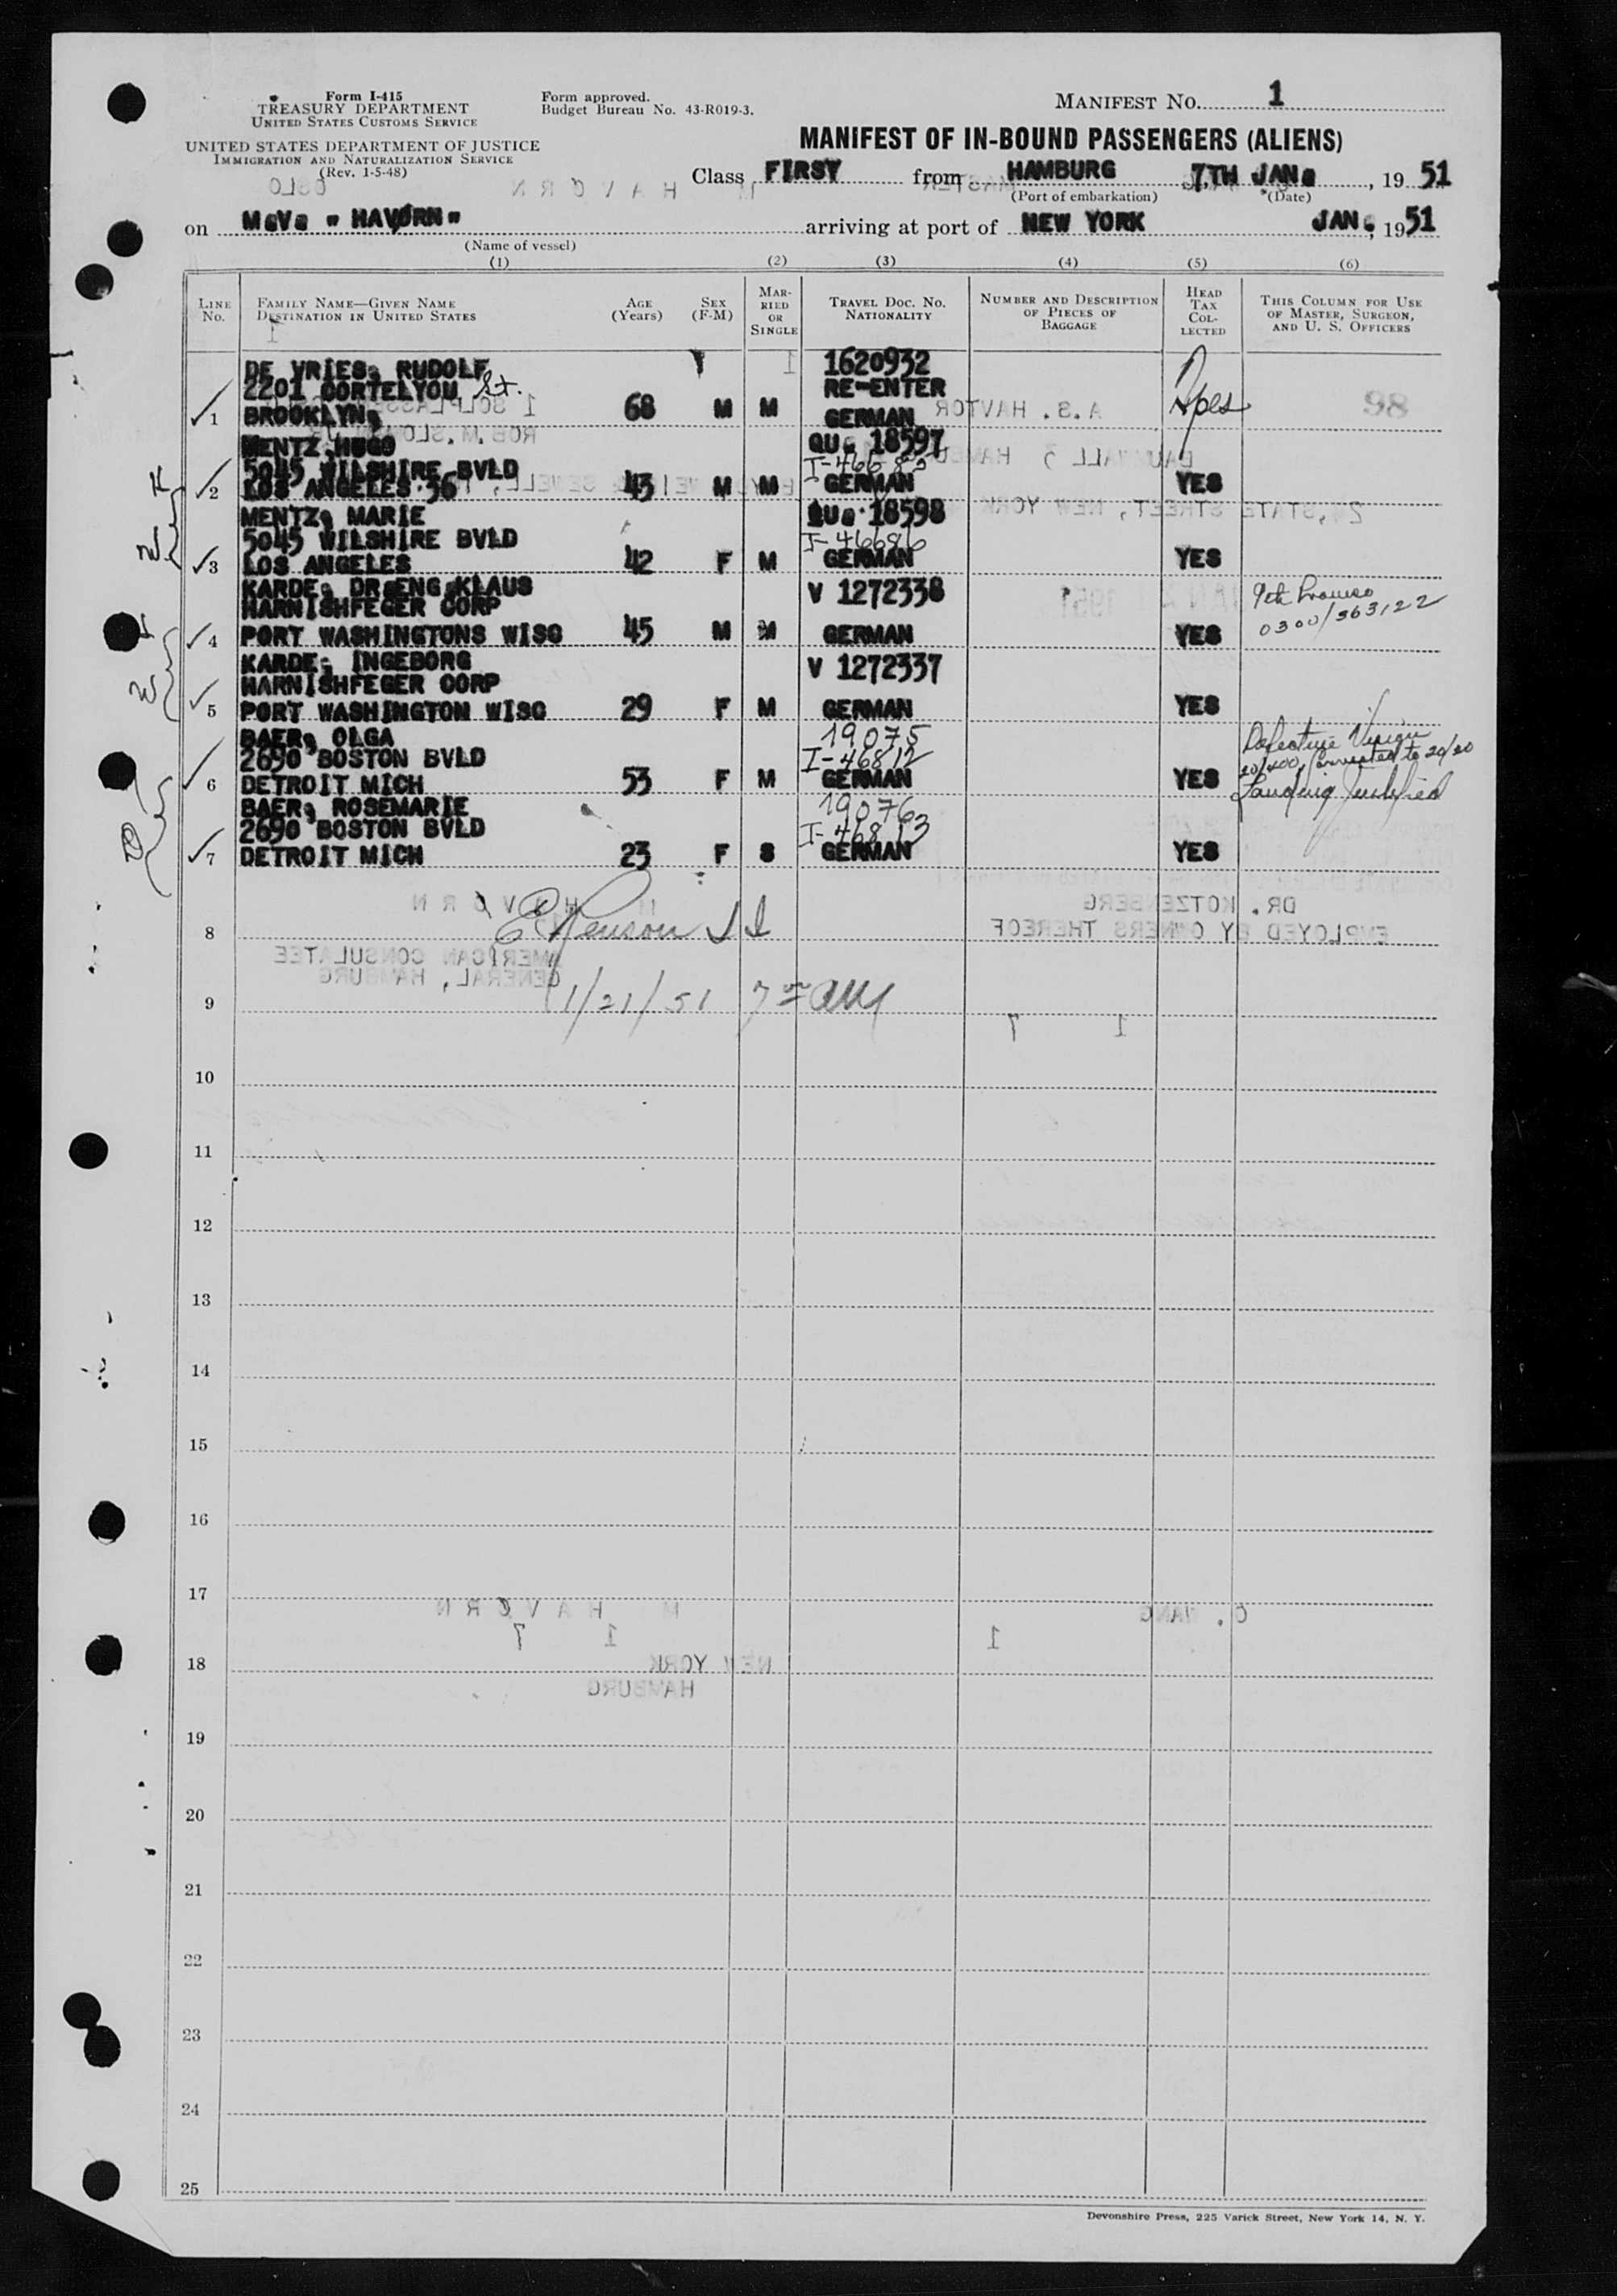 Form I-415
TREASURY DEPARTMENT
UNITED STATES CUSTOMS SERVICE
UNITED STATES DEPARTMENT OF JUSTICE
IMMIGRATION AND NATURALIZATION SERVICE
(Rev. 1-5-48)
Form approved.
Budget Bureau No. 43-R019-3.
MANIFEST NO. 1
MANIFEST OF IN-BOUND PASSENGERS (ALIENS)
Class FIRST from HAMBURG 7TH JAN. , 19 51
(Port of embarkation) (Date)
on M.V. " HAVØRN " arriving at port of NEW YORK JAN. , 19 51
(Name of vessel)
(1) (2) (3) (4) (5) (6)
LINE No. FAMILY NAME—GIVEN NAME DESTINATION IN UNITED STATES AGE (Years) SEX (F-M) MARRIED OR SINGLE TRAVEL DOC. NO. NATIONALITY NUMBER AND DESCRIPTION OF PIECES OF BAGGAGE HEAD TAX COLLECTED THIS COLUMN FOR USE OF MASTER, SURGEON, AND U. S. OFFICERS
DE VRIES, RUDOLF 1620932
2201 CORTELYOU, St. RE-ENTER
1 BROOKLYN, 68 M M GERMAN
MENTZ, HUGO QU. 18597
5045 WILSHIRE BVLD I-46685
2 LOS ANGELES 36 43 M M GERMAN YES
MENTZ, MARIE QU. 18598
5045 WILSHIRE BVLD I-46686
3 LOS ANGELES 42 F M GERMAN YES
KARDE, DR.ENG.KLAUS V 1272338
HARNISHFEGER CORP 9th Proviso
4 PORT WASHINGTONS WISC 45 M M GERMAN YES 0300/363122
KARDE, INGEBORG V 1272337
HARNISHFEGER CORP
5 PORT WASHINGTON WISC 29 F M GERMAN YES
BAER, OLGA 19075 Defective Vision
2690 BOSTON BVLD I-46812 20/400, corrected to 20/20
6 DETROIT MICH 53 F M GERMAN YES Landing Justified
BAER, ROSEMARIE 19076
2690 BOSTON BVLD I-46813
7 DETROIT MICH 23 F S GERMAN YES
8
9 1/21/51 7 AM
10
11
12
13
14
15
16
17
18
19
20
21
22
23
24
25
Devonshire Press, 225 Varick Street, New York 14, N. Y.